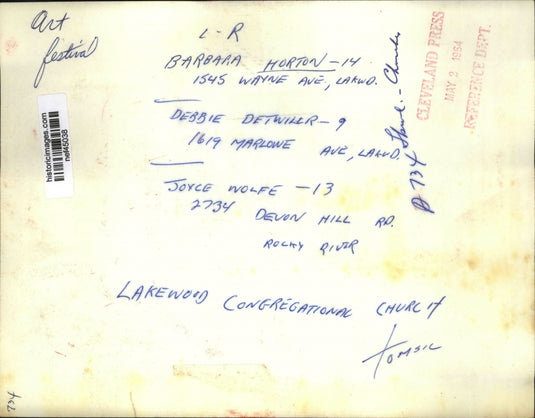 Art
festival
L-R
BARBARA HORTON-14
1545 WAYNE AVE, LAKWD.
DEBBIE DETWILLR-9
1619 MARLOWE AVE, LAKWD.
JOYCE WOLFE -13
2734 DEVON HILL RD.
ROCKY RIVER
LAKEWOOD CONGREGATIONAL CHURCH
TOMSIC
CLEVELAND PRESS
MAY 2 1964
REFERENCE DEPT.
734
historicimages.com
nef45038
734